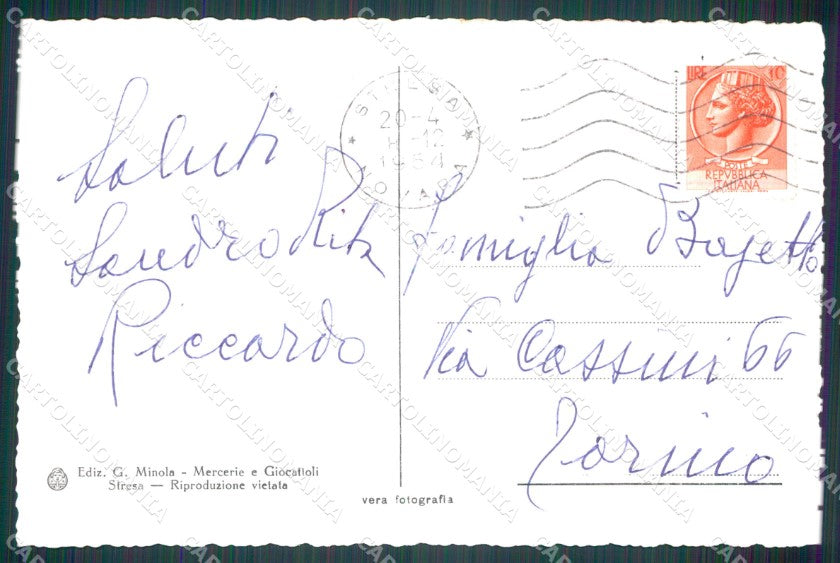 Saluti
Sandro Rita
Riccardo
Ediz. G. Minola - Mercerie e Giocattoli
Stresa — Riproduzione vietata
vera fotografia
STRESA
20-4
1954
NOVARA
LIRE 10
POSTE
REPVBBLICA
ITALIANA
Famiglia
Via Cassini 66
Torino
CARTOLINOMANIA